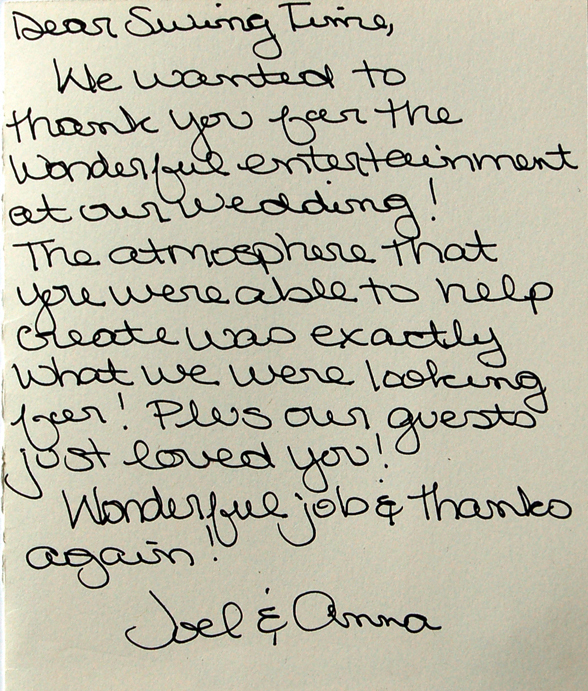 Dear Swing Time,
We wanted to
thank you for the
wonderful entertainment
at our wedding!
The atmosphere that
you were able to help
create was exactly
what we were looking
for! Plus our guests
just loved you!
Wonderful job & thanks
again!
Joel & Anna